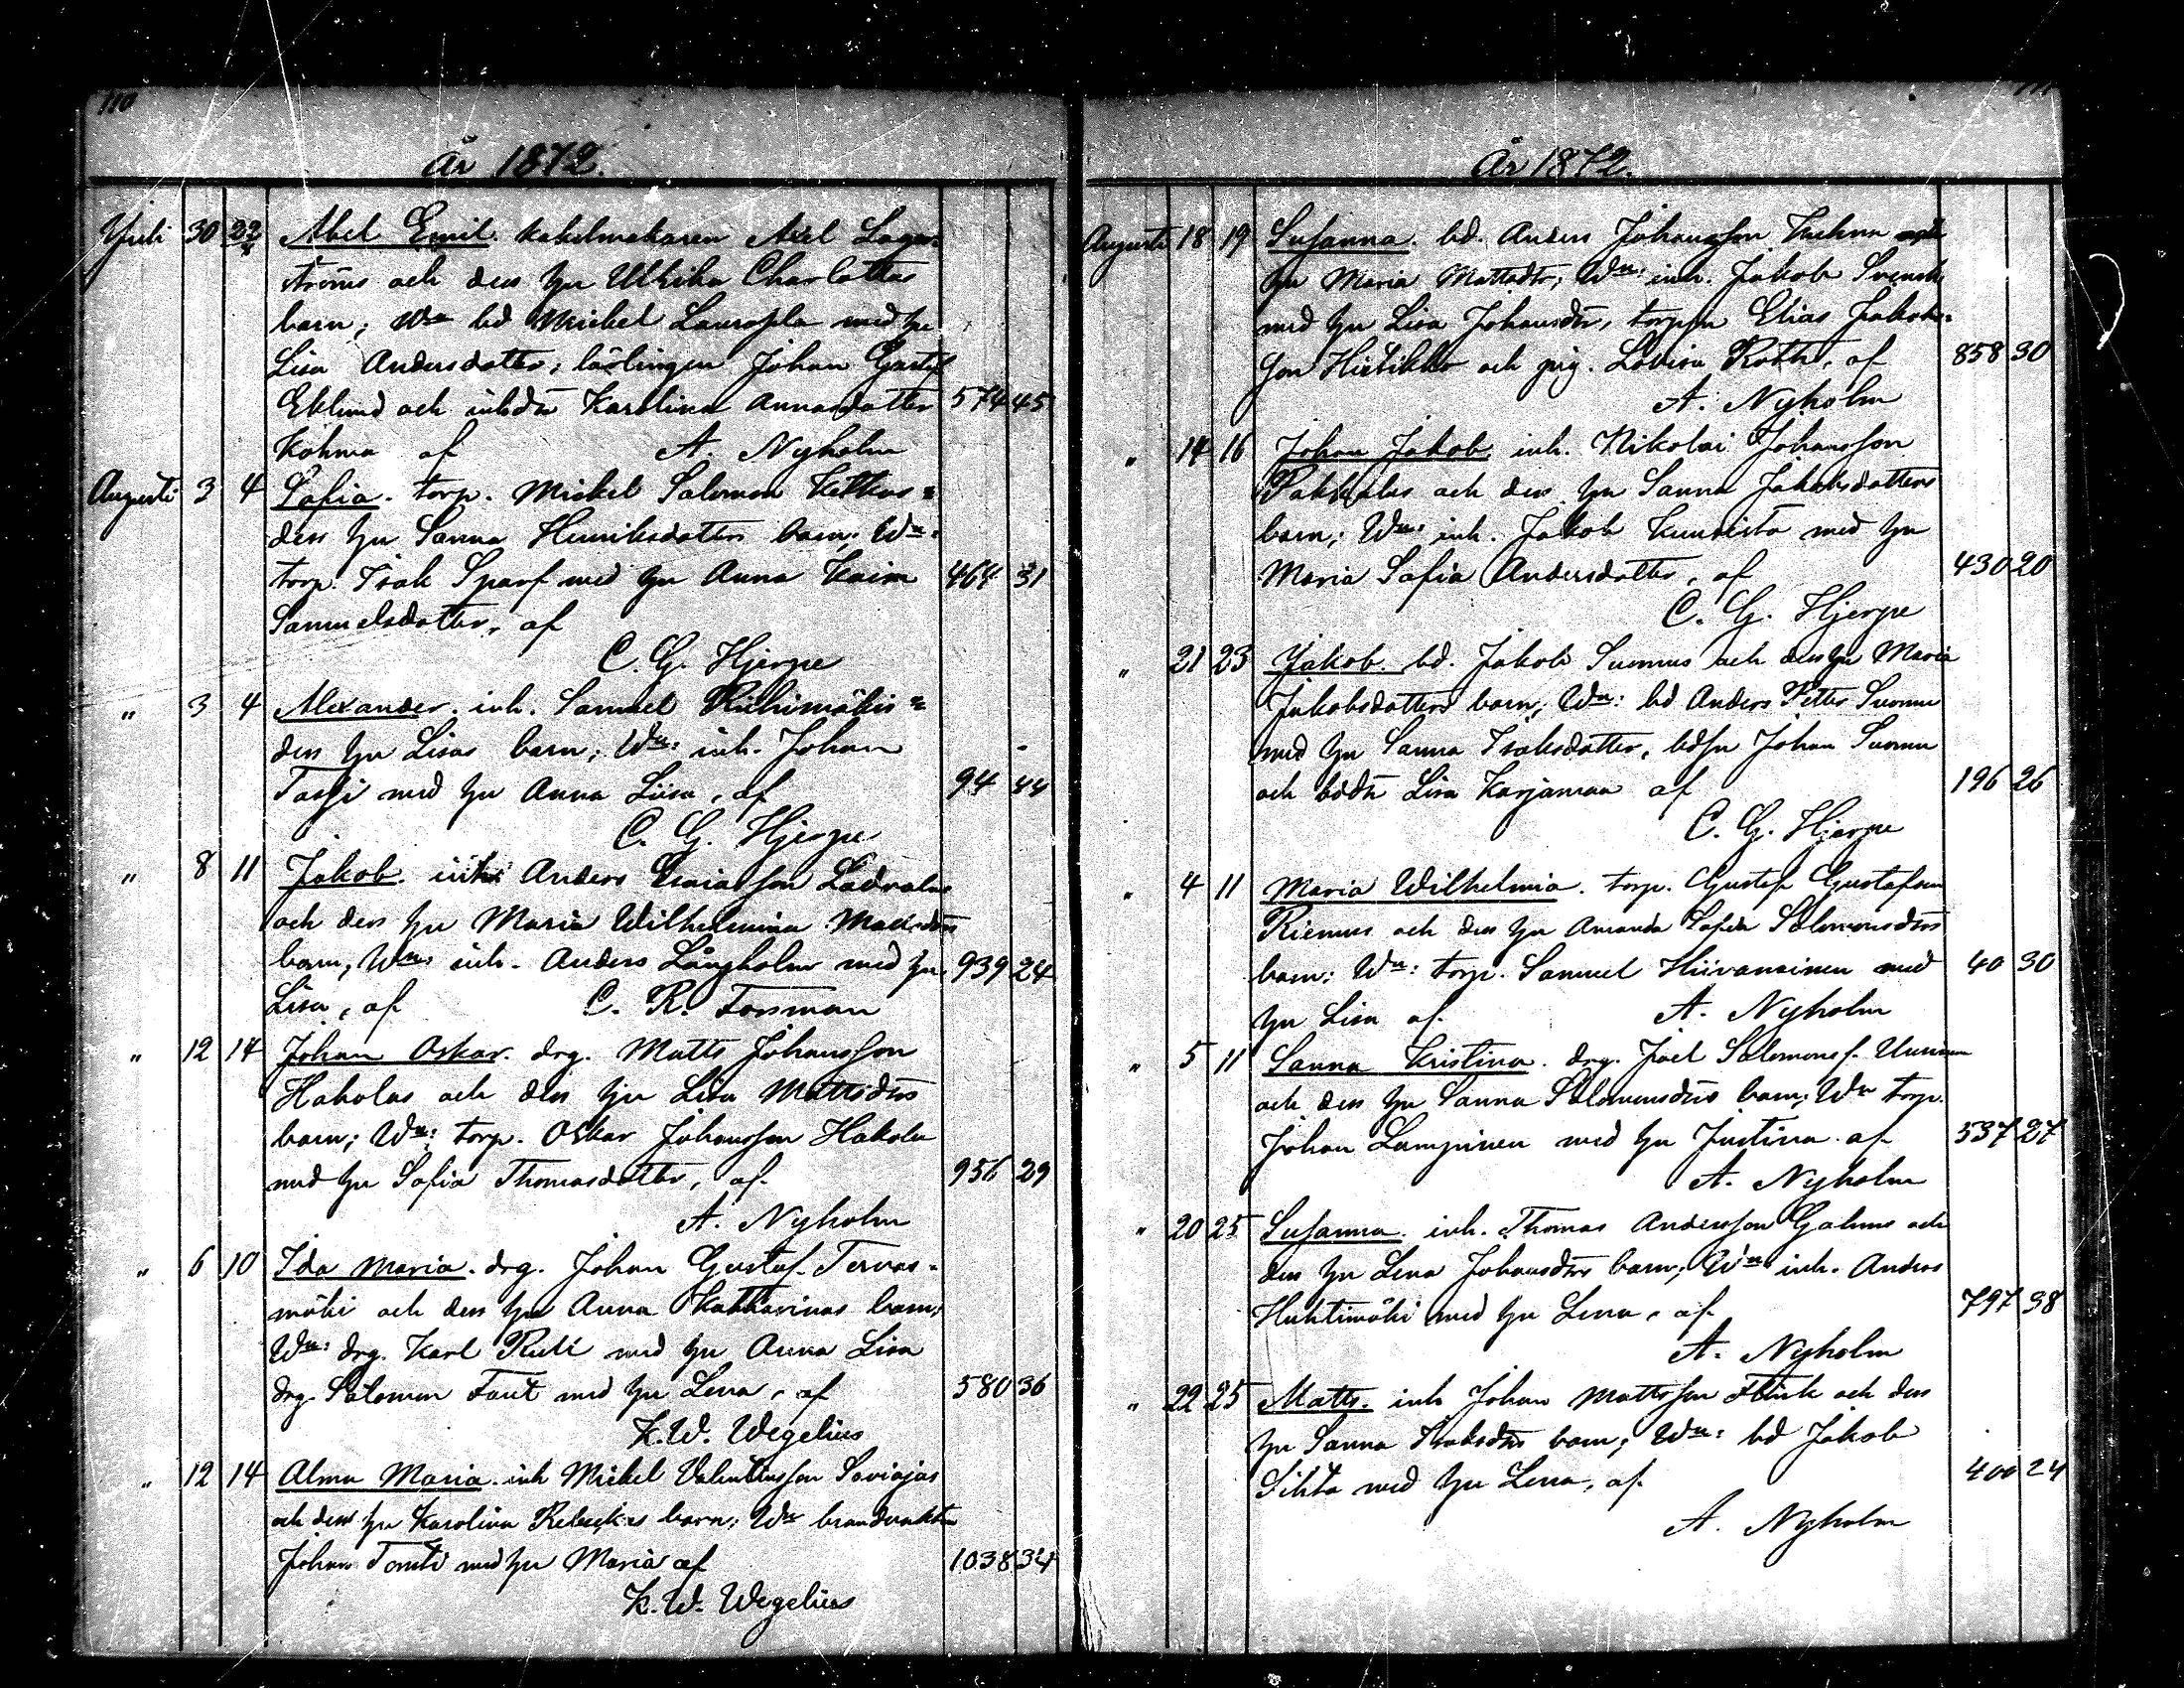 110
År 1872.
Juli 30 22 Abel Emil. kakelmakaren Axel Lager-
ströms och dess hu Ulrika Charlottas
barn; Wn bd Mickel Laurosela med hu
Lisa Andersdotter; lärlingen Johan Gustaf
Eklund och inhdtr Karolina Annasdotter 574 45
Kohma af A. Nyholm
Augusti 3 4 Sofia. torp. Mickel Salomon Ketkas =
dess hu Sanna Henriksdotters barn; Wn:
torp. Isak Sparf med hu Anna Kaisa 464 31
Samuelsdotter, af
C. G. Hjerpe
" 3 4 Alexander. inh. Samuel Riihimäkis =
dess hu Lisas barn; Wn: inh. Johan
Tassi med hu Anna Liisa, af 94 44
C. G. Hjerpe
" 8 11 Jakob. inh: Anders Esaiasson Ladvalas
och dess hu Maria Wilhelmina Mattsdtrs
barn; Wn: inh. Anders Långholm med hu 939 24
Lisa, af C. R. Forsman
" 12 14 Johan Oskar. drg. Matts Johansson
Hakolas och dess hu Lisa Mattsdtrs
barn; Wn: torp. Oskar Johansson Hakola
med hu Sofia Thomasdotter, af 956 29
A. Nyholm
" 6 10 Ida Maria. drg. Johan Gustaf Tervas-
mäki och dess hu Anna Katharinas barn;
Wn: drg. Karl Ruti med hu Anna Lisa
drg. Salomon Faut med hu Lena, af 580 36
K. W. Wegelius
" 12 14 Alma Maria. inh Mickel Valentinsson Saviojas
och dess hu Karolina Rebeckas barn; Wn brandvakten
Johan Tomti med hu Maria af 1038 34
K. W. Wegelius
År 1872.
Augusti 18 19 Susanna. bd. Anders Johansson
hu Maria Mattsdtr; Wn: inh. Jakob Svensk
med hu Lisa Johansdtr, torpsn Elias Jakobs-
son Hietikko och pig. Lovisa Röth, af 858 30
A. Nyholm
" 14 16 Johan Jakob. inh. Nikolai Johansson
Pakkalas och dess hu Sanna Jakobsdotters
barn; Wn: inh. Jakob Kuusisto med hu
Maria Sofia Andersdotter, af 430 20
C. G. Hjerpe
" 21 23 Jakob. bd. Jakob Suomus och dess hu Maria
Jakobsdotters barn; Wn: bd Anders Petter Suomu
med hu Sanna Isaksdotter, bdsn Johan Suomu
och bddtr Lisa Karjanmaa af 196 26
C. G. Hjerpe
" 4 11 Maria Wilhelmia. torp. Gustaf Gustafson
Riemus och dess hu Amanda Sofia Salomonsdtrs
barn: Wn: torp. Samuel Hiivanainen med 40 30
hu Lisa af A. Nyholm
" 5 11 Sanna Kristina. drg. Joel Salomonss.
och dess hu Sanna Salomonsdtrs barn; Wn torp.
Johan Lampinen med hu Justina af 537 27
A. Nyholm
" 20 25 Susanna. inh. Thomas Andersson Gahms och
dess hu Lena Johansdtrs barn; Wn: inh. Anders
Huhtimäki med hu Lena, af 797 38
A. Nyholm
" 22 25 Matts. inh Johan Mattsson Flink och dess
hu Sanna Isaksdtrs barn; Wn: bd Jakob
Sihto med hu Lena, af 400 24
A. Nyholm